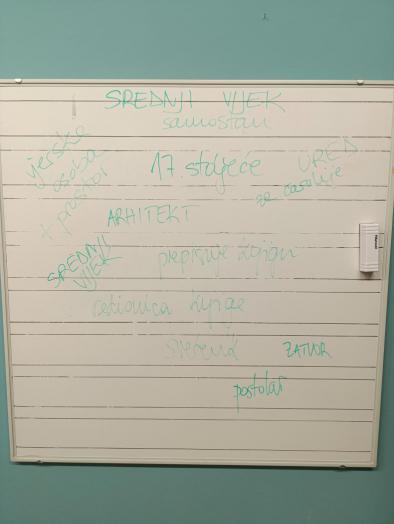 SREDNJI VIJEK
samostan
vjerska
osoba
+ prostor
17 stoljeće
URED
za časopise
ARHITEKT
SREDNJI
VIJEK
prepisuje knjigu
knjige
svećenik
ZATVOR
postolar